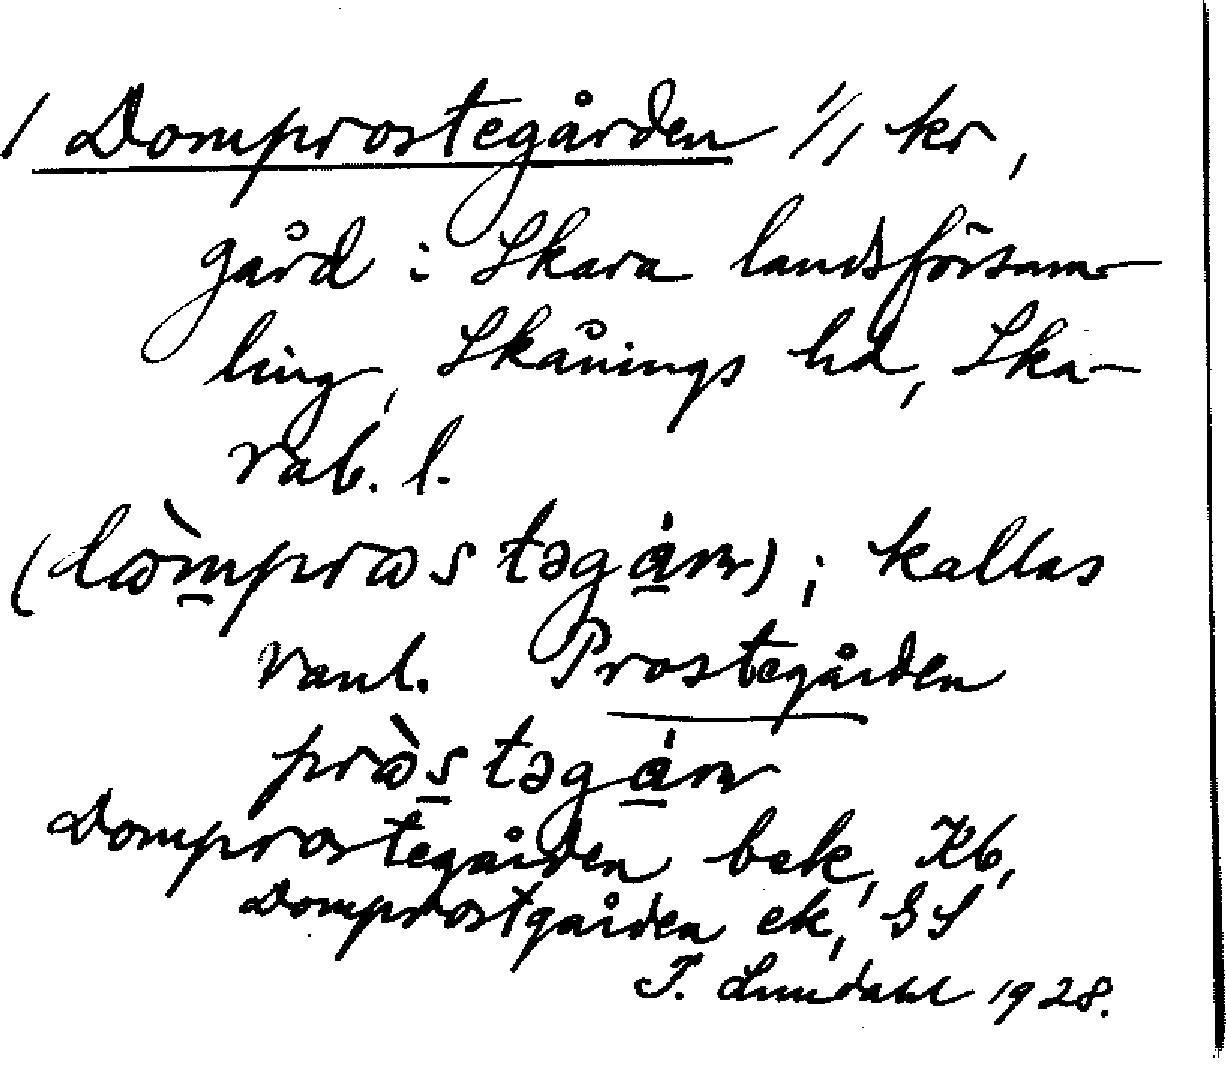 / Domprostegården 1/1 kr,
gård i Skara landsförsam-
ling, Skånings hd, Ska-
rab. l.
; kallas
vanl. Prostegården
Domprostegården bek, Kb,
Domprostgården ek, GS
I. Lundahl 1928.